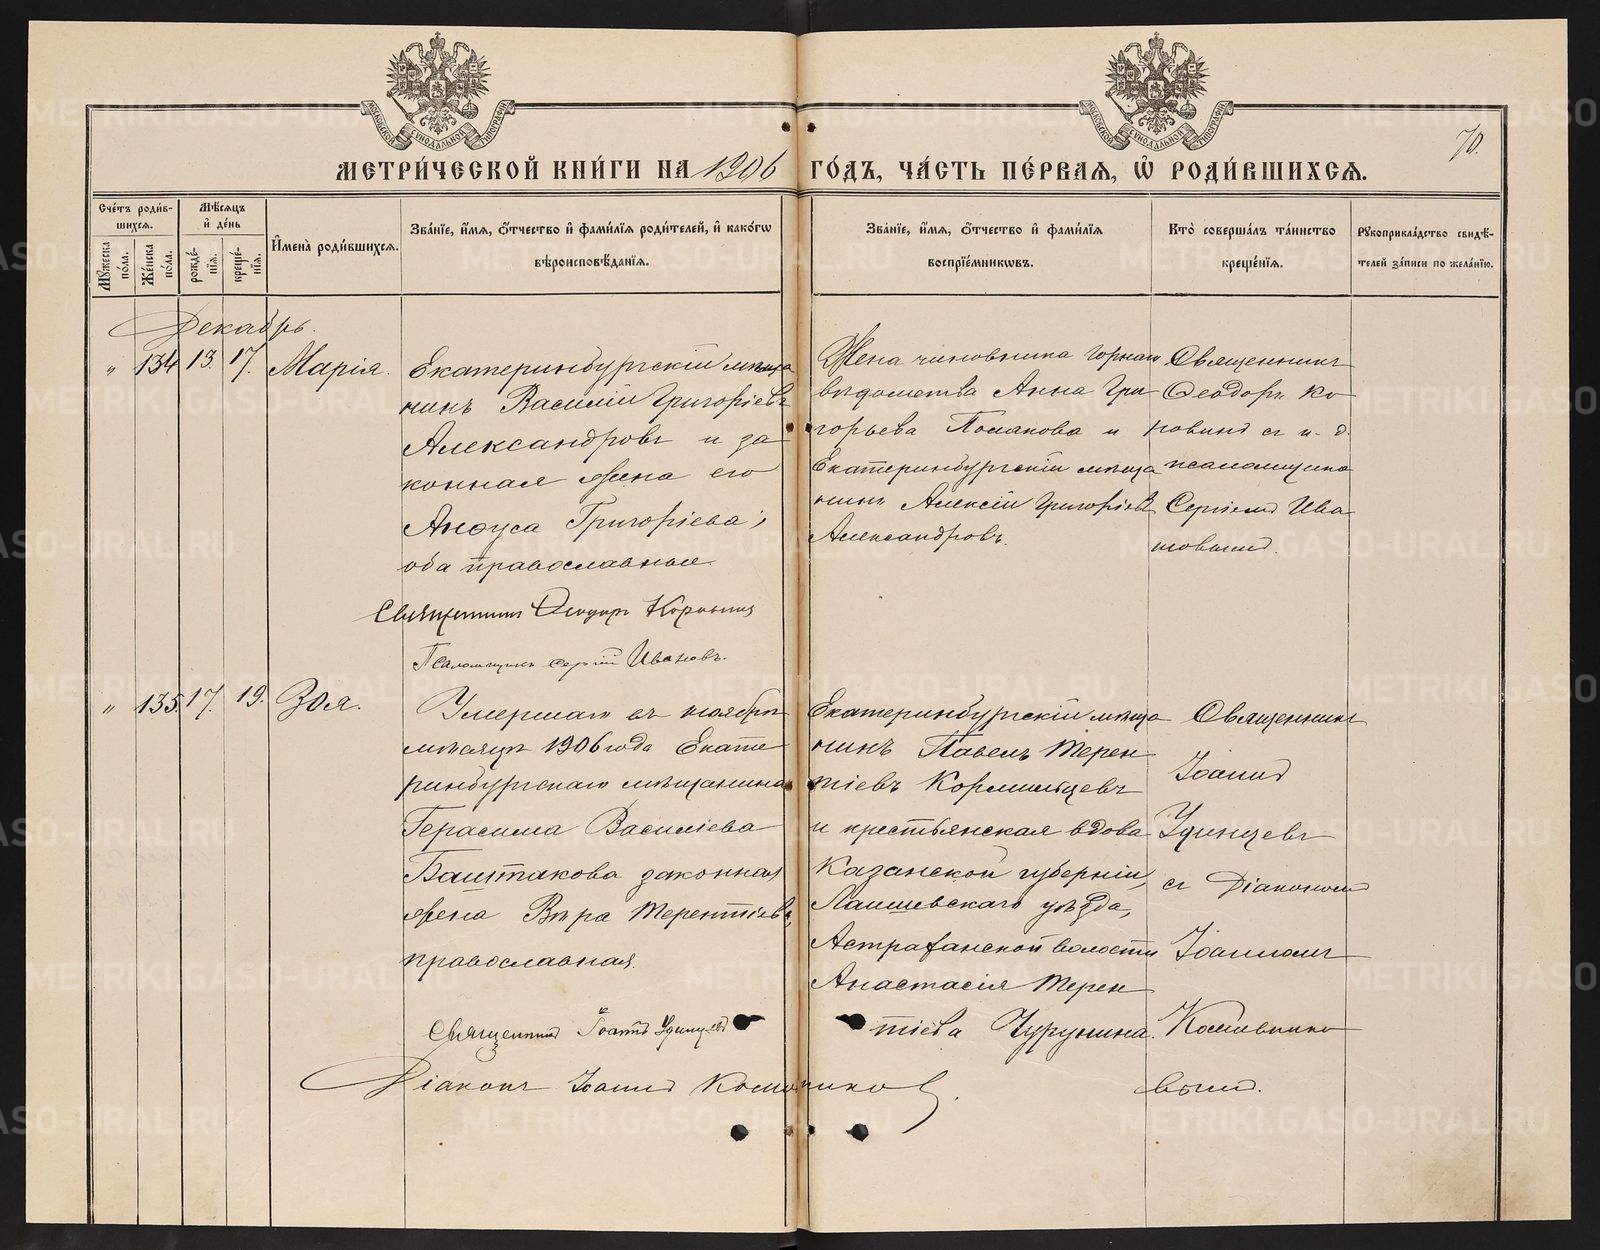 МОСКОВСКОЙ СѴНОДАЛЬНОЙ ТИПОГРАФІИ
МОСКОВСКОЙ СѴНОДАЛЬНОЙ ТИПОГРАФІИ
70.
МЕТРИ́ЧЕСКОЙ КНИ́ГИ НА 1906 ГО́ДЪ, ЧА́СТЬ ПЕ́РВАѦ, Ѡ҆ РОДИ́ВШИХСѦ.
Сче́тъ роди́в-
шихсѧ.
Мꙋ́жеска по́ла.
Же́нска по́ла.
Мѣ́сѧцъ и҆ де́нь
рожде́-нїѧ.
креще́-нїѧ.
И҆мена̀ роди́вшихсѧ.
Зва́нїе, и҆́мѧ, ѻ҆́тчество и҆ фами́лїѧ роди́телей, и҆ како́гѡ
вѣроисповѣ́данїѧ.
Зва́нїе, и҆́мѧ, ѻ҆́тчество и҆ фами́лїѧ
воспрїе́мникѡвъ.
Кто̀ соверша́лъ та́инство
креще́нїѧ.
Рꙋкоприкла́дство свидѣ́-
телей за́писи по жела́нїю.
Декабрь.
" 134 13. 17. Марія.
Екатеринбургскій мѣща
нинъ Василій Григоріевъ
Александровъ и за
конная жена его
Анфуса Григоріева;
оба православные
Священникъ Ѳеодоръ Коровинъ
Псаломщикъ Сергій Ивановъ.
Жена чиновника горнаго
вѣдомства Анна Гри
горьева Полякова и
Екатеринбургскій мѣща
нинъ Алексій Григоріевъ
Александровъ.
Священникъ
Ѳеодоръ Ко
ровинъ съ и. д.
псаломщика
Сергіемъ Ива
новымъ.
" 135. 17. 19. Зоя.
Умершаго въ ноябрѣ
мѣсяцѣ 1906 года Екате
ринбургскаго мѣщанина
Герасима Василіева
Баштакова законная
жена Вѣра Терентіева,
православная.
Священникъ Іоаннъ Удинцевъ
Діаконъ Іоаннъ Кошовников
Екатеринбургскій мѣща
нинъ Павелъ Терен
тіевъ Кормильцевъ
и крестьянская вдова
Казанской губерніи,
Лаишевскаго уѣзда,
Астраханской волости
Анастасія Терен
тіева Чурунина.
Священникъ
Іоаннъ
Удинцевъ
съ Діакономъ
Іоанномъ
вымъ.